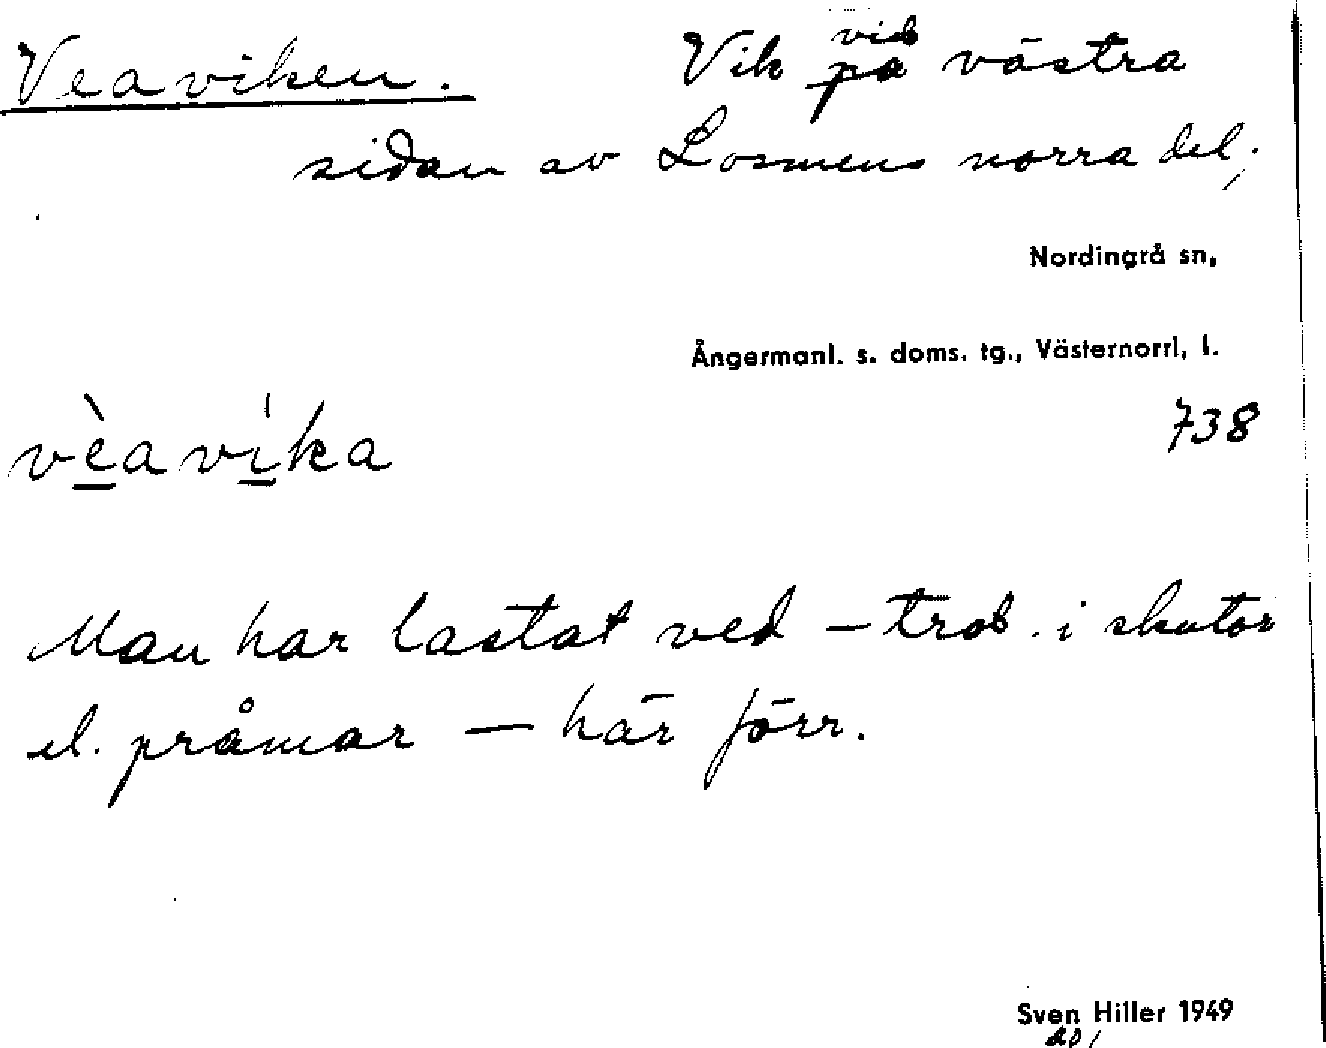 Veaviken. Vik på vid västra
sidan av Losmens norra del;
Nordingrå sn,
Ångermanl. s. doms. tg., Västernorrl, l.
738
vèavìka
Man har lastat ved – trol. i skutor
el. pråmar — här förr.
Sven Hiller 1949